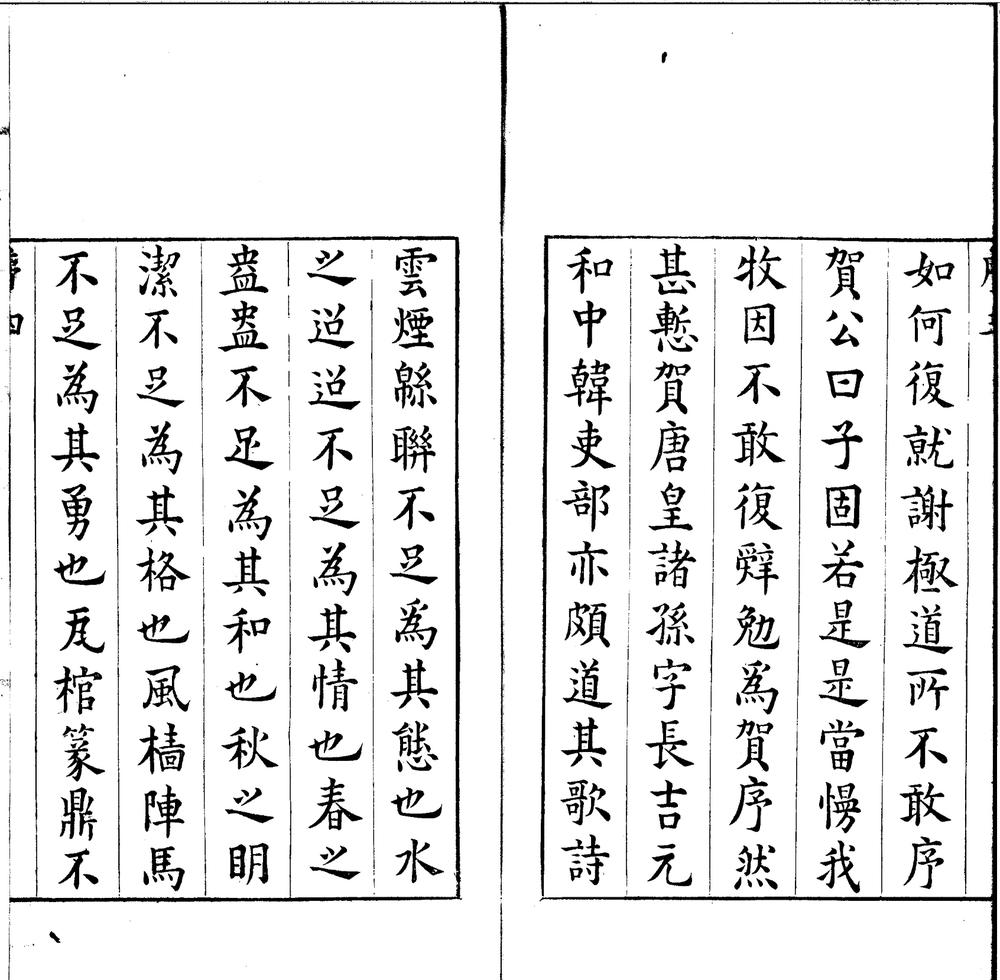 如何復就謝極道所不敢序
賀公曰子固若是是當慢我
牧因不敢復辭勉爲賀序然
甚慙賀唐皇諸孫字長吉元
和中韓吏部亦頗道其歌詩
雲煙緜聯不足爲其態也水
之迢迢不足為其情也春之
盎盎不足為其和也秋之明
潔不足為其格也風檣陣馬
不足為其勇也瓦棺篆鼎不